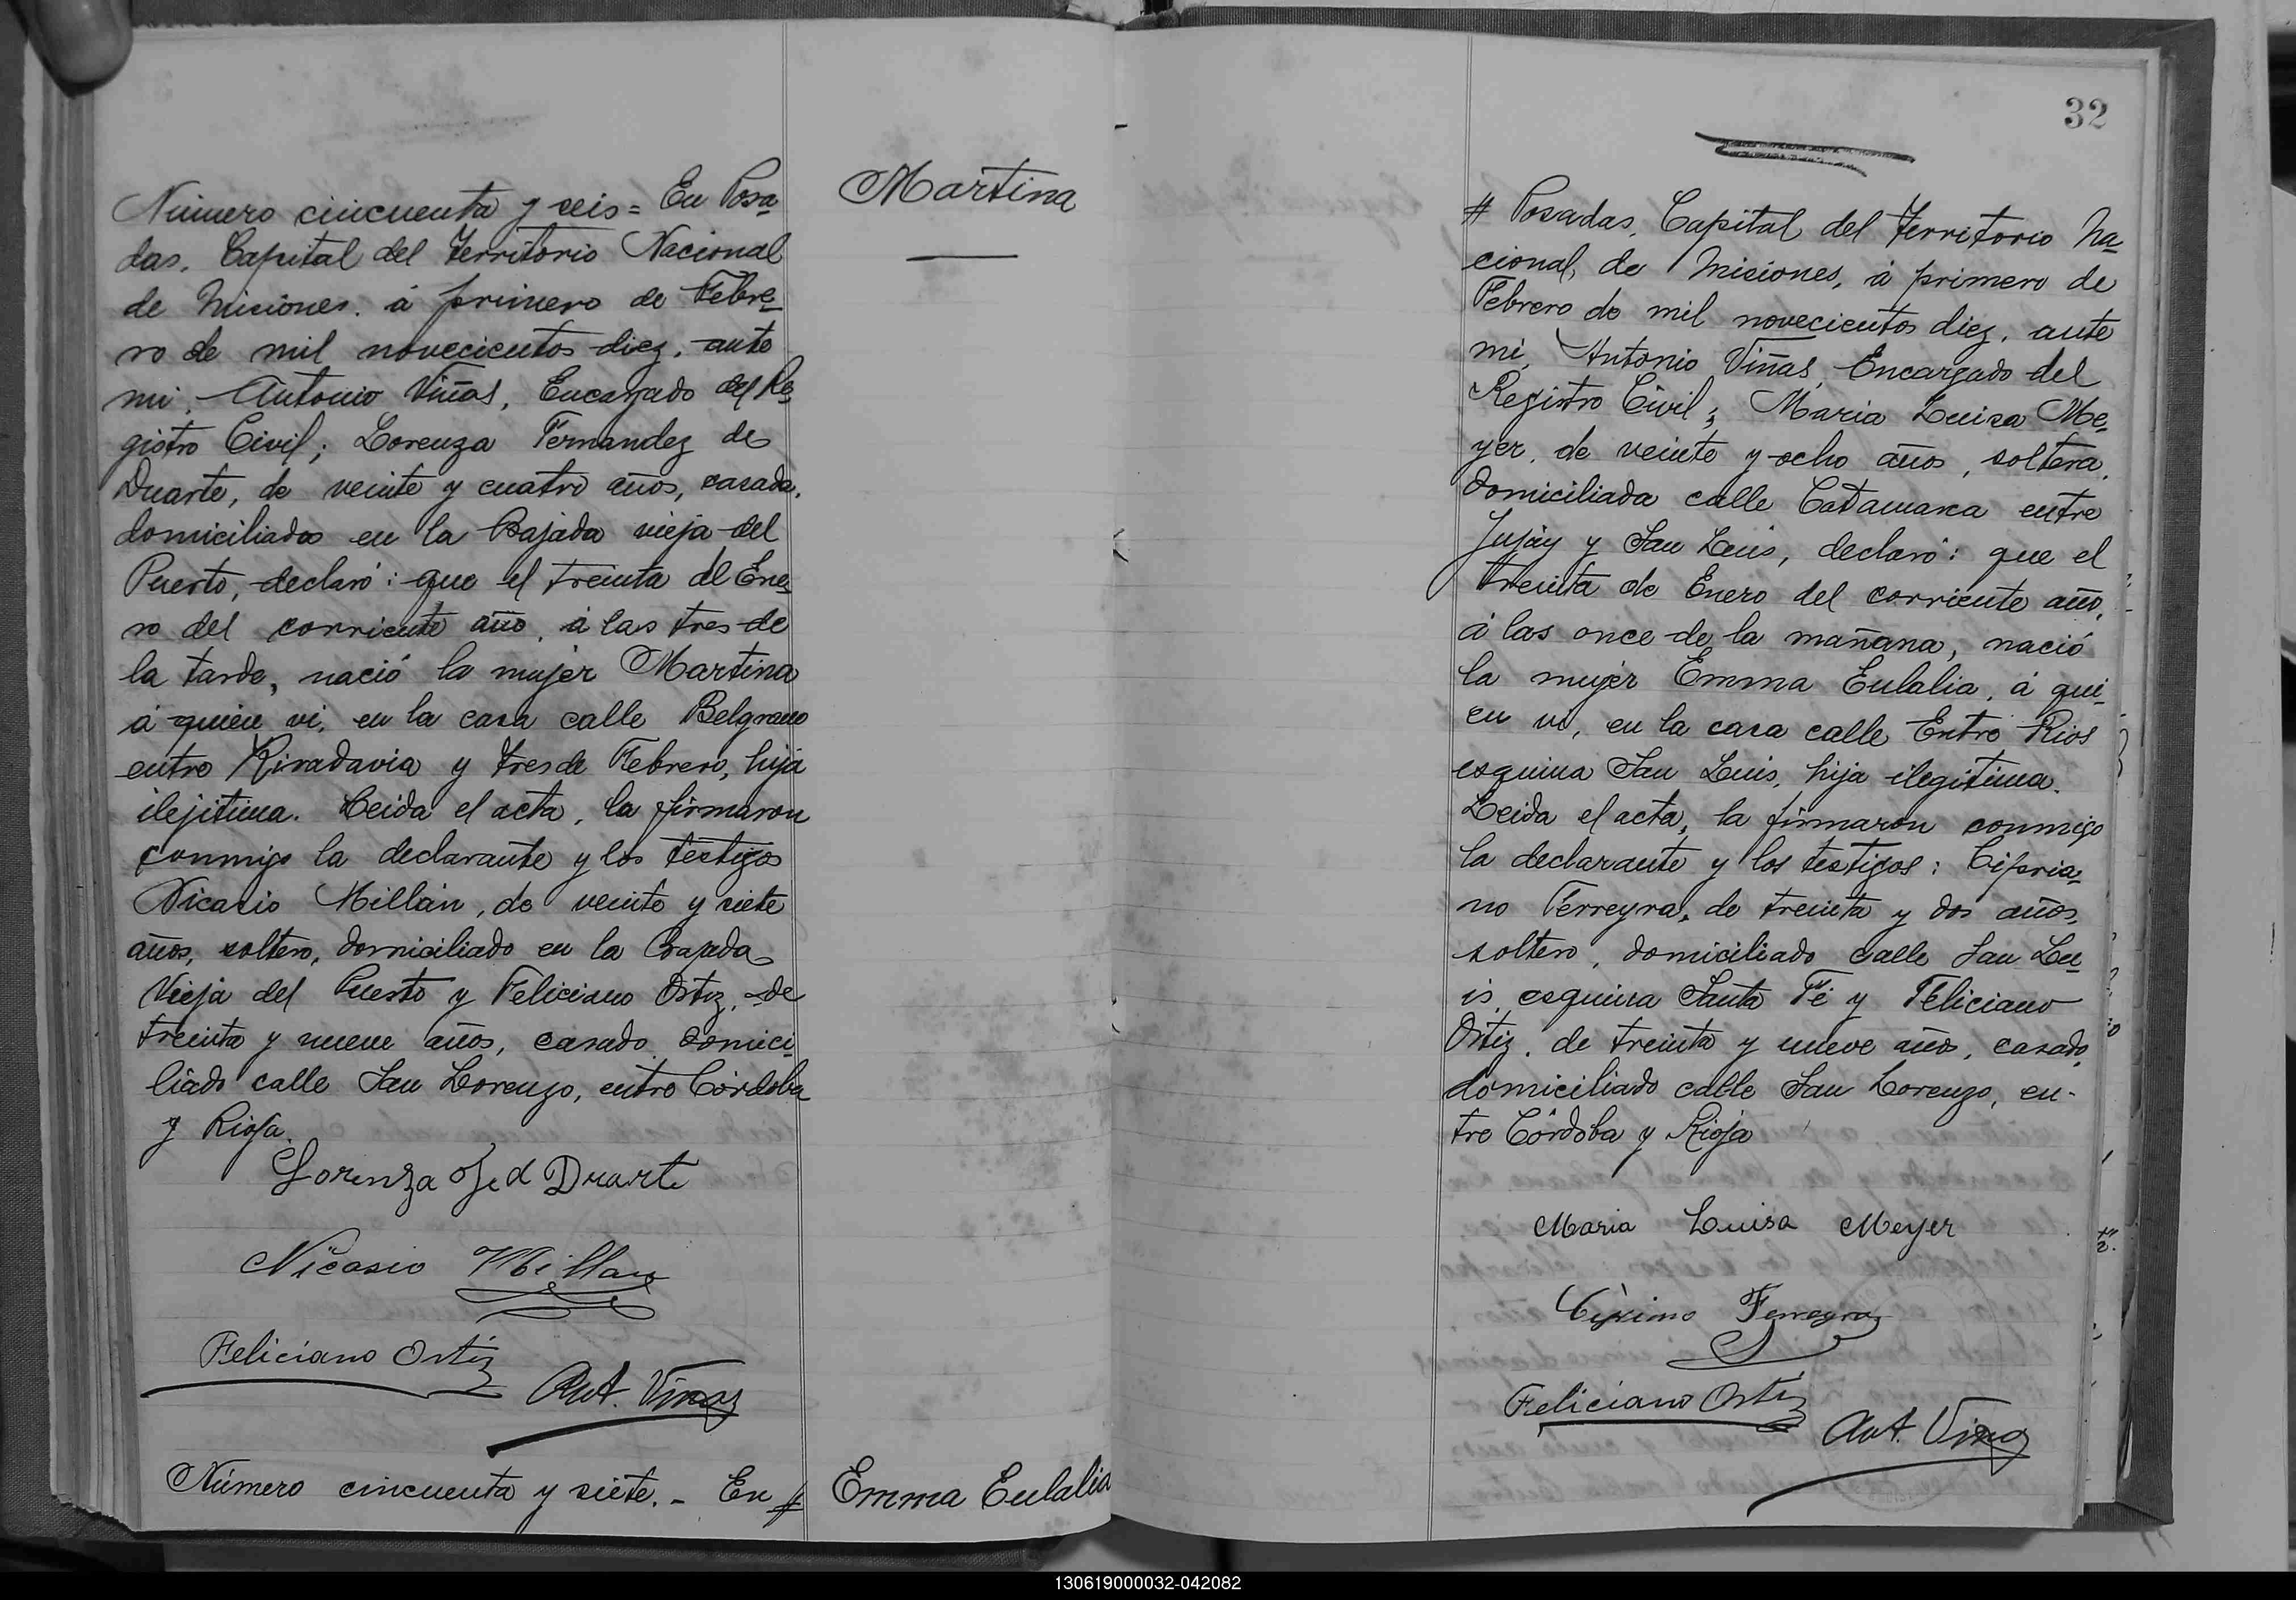 Número cincuenta y seis = En Posa=
das, Capital del Territorio Nacional
de Misiones, á primero de Febre=
ro de mil novecientos diez, ante
mi, Antonio Viñas, Encargado del Re=
gistro Civil; Lorenza Fernandez de
Duarte, de veinte y cuatro años, casada,
domiciliada en la Bajada vieja del
Puerto, declaró: que el treinta de Ene=
ro del corriente año, á las tres de
la tarde, nació la mujer Martina
á quien vi, en la casa calle Belgrano
entre Rivadavia y tres de Febrero, hija
ilejitima. Leida el acta, la firmaron
conmigo la declarante y los testigos
Nicasio Millán, de veinte y siete
años, soltero, domiciliado en la Bajada
Vieja del Puerto y Feliciano Ortiz, de
treinta y nueve años, casado, domici=
liado calle San Lorenzo, entre Córdoba
y Rioja.
Lorenza F. d Duarte
Nicasio Millan
Feliciano Ortiz
Ant. Viñas
Número cincuenta y siete. - En #
Martina
Emma Eulalia
32
# Posadas, Capital del Territorio Na=
cional, de Misiones, á primero de
Febrero de mil novecientos diez, ante
mi, Antonio Viñas, Encargado del
Registro Civil; Maria Luisa Me=
yer, de veinte y ocho años, soltera,
domiciliada calle Catamarca entre
Jujúy y San Luis, declaró: que el
treinta de Enero del corriente año,
á las once de la mañana, nació
la mujer Emma Eulalia, á qui-
en vi, en la casa calle Entre Rios
esquina San Luis, hija ilegitima.
Leida el acta, la firmaron conmigo
la declarante y los testigos: Cipria=
no Ferreyra, de treinta y dos años,
soltero, domiciliado calle San Lu=
is, esquina Santa Fé y Feliciano
Ortiz, de treinta y nueve años, casado,
domiciliado calle San Lorenzo, en-
tre Córdoba y Rioja
Maria Luisa Meyer
Ferreyra
Feliciano Ortiz
Ant. Viñas
130619000032-042082